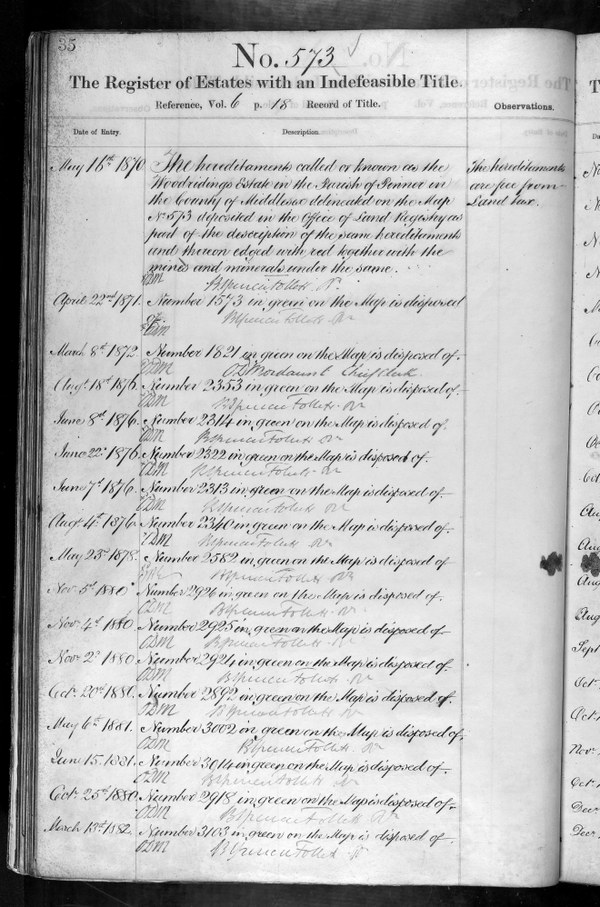 35
No. 573
The Register of Estates with an Indefeasible Title.
Reference, Vol. 6 p. 18 Record of Title.
Observations.
Date of Entry.
Description.
May 16th 1870 The hereditaments called or known as the
Woodridings Estate in the Parish of Pinner in
the County of Middlesex delineated on the Map
No 573 deposited in the Office of Land Registry as
part of the description of the same hereditaments
and thereon edged with red together with the
mines and minerals under the same.
The hereditaments
are free from
Land tax.
ODM
B Spencer Follett Rr
April 22nd 1871. Number 1573 in green on the Map is disposed
of.
B Spencer Follett Rr
ODM
March 8th 1872. Number 1821 in green on the Map is disposed of.
ODM O D Mordaunt Chief Clerk
Augt 18th 1876. Number 2353 in green on the Map is disposed of.
ODM B Spencer Follett Rr
June 8th 1876. Number 2314 in green on the Map is disposed of.
ODM B Spencer Follett Rr
June 22nd 1876. Number 2322 in green on the Map is disposed of.
ODM B Spencer Follett Rr
June 7th 1876. Number 2313 in green on the Map is disposed of.
ODM B Spencer Follett Rr
Augt 4th 1876. Number 2340 in green on the Map is disposed of.
ODM B Spencer Follett Rr
May 23rd 1878. Number 2582 in green on the Map is disposed of
B Spencer Follett Rr
Nov. 5th 1880. Number 2926 in green on the Map is disposed of.
ODM B Spencer Follett Rr
Nov. 4th 1880 Number 2925 in green on the Map is disposed of.
ODM B Spencer Follett Rr
Nov 2nd 1880. Number 2924 in green on the Map is disposed of.
ODM B Spencer Follett Rr
Octr 20th 1880. Number 2892 in green on the Map is disposed of.
ODM B Spencer Follett Rr
May 6th 1881. Number 3002 in green on the Map is disposed of.
ODM B Spencer Follett Rr
June 15. 1881. Number 3014 in green on the Map is disposed of.
ODM B Spencer Follett Rr
Octr 25th 1880. Number 2918 in green on the Map is disposed of.
ODM B Spencer Follett Rr
March 13th 1882. Number 3103 in green on the Map is disposed of.
ODM B Spencer Follett Rr